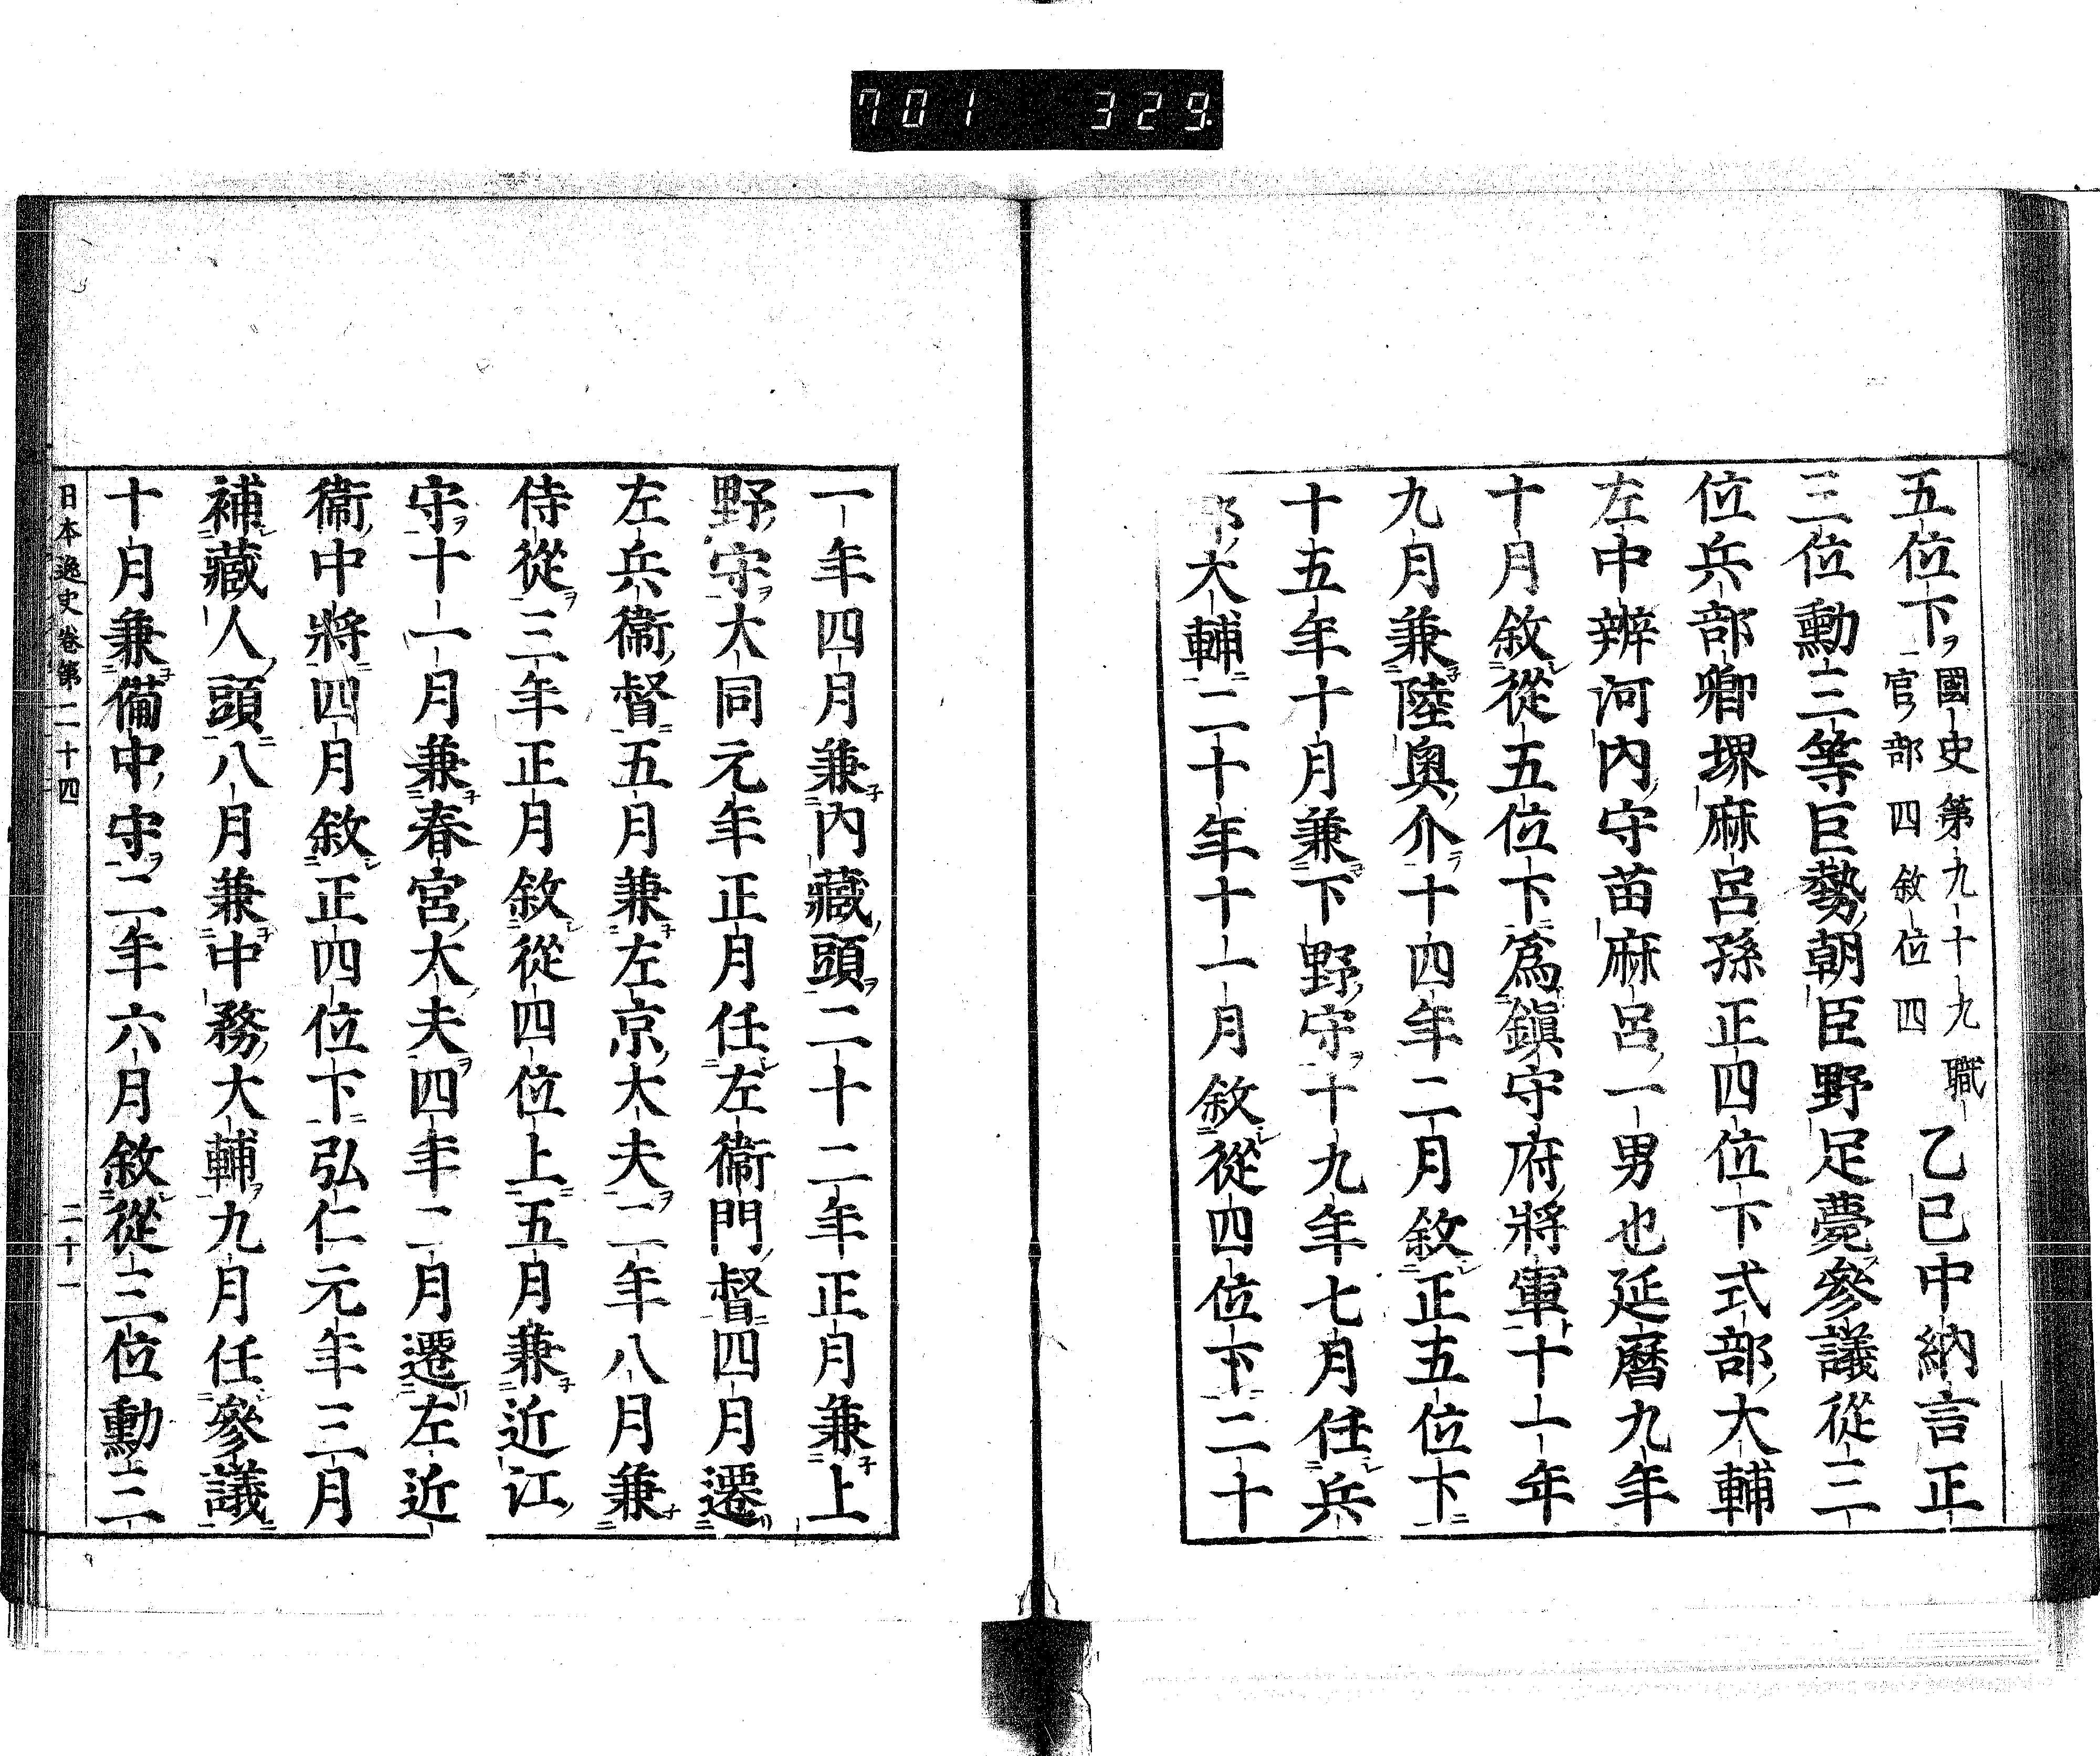 701 329.
五位下國史第九十九職
官部四敘位四乙巳中納言正
三位勳三等巨勢朝臣野足薨參議從三
位兵部卿堺麻呂孫正四位下式部大輔
左中辨河內守苗麻呂一男也延曆九年
十月敘從五位下爲鎭守府將軍十一年
九月兼陸奧介十四年二月敘正五位下
十五年十月兼下野守十九年七月任兵
部大輔二十年十一月敘從四位下二十
一年四月兼內藏頭二十二年正月兼上
野守大同元年正月任左衞門督四月遷
左兵衞督五月兼左京大夫二年八月兼
侍從三年正月敘從四位上五月兼近江
守十一月兼春宮大夫四年二月遷左近
衞中將四月敘正四位下弘仁元年三月
補藏人頭八月兼中務大輔九月任參議
十月兼備中守二年六月敘從三位勳三
日本逸史卷第二十四 二十一